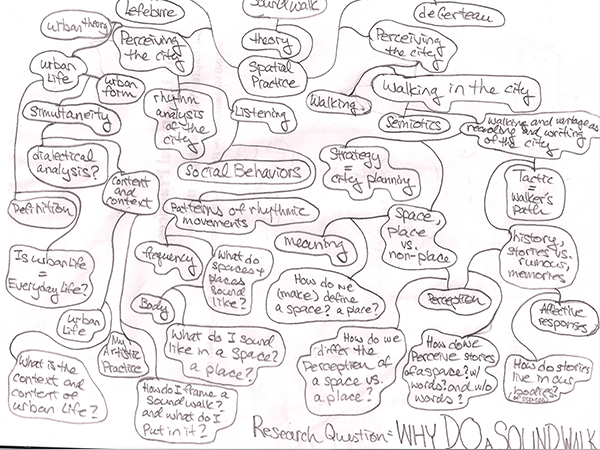 Lefebvre
Soundwalk
de Certeau
urban theory
Perceiving
the city
theory
Perceiving
the city
urban
Life
urban
form
Spatial
Practice
Walking in the city
Simultaneity
rhythm
analysis
of the
city
Listening
Walking
Semiotics
Walking and
reading and writing
of the city
dialectical
analysis?
Content
and
context
Social Behaviors
Strategy
=
city planning
Tactic
=
Walker's
Path
Definition
Patterns of rhythmic
movements
Space,
place
vs.
non-place
meaning
history,
stories vs.
rumours,
memories
Is urban Life
=
Everyday Life?
frequency
What do
spaces +
places
sound
like?
How do we
(make) define
a space? a place?
Perception
Affective
responses
Body
urban
Life
My
Artistic
Practice
What do I sound
like in a space?
a place?
How do we
differ the
Perception of
a space vs.
a place?
How do we
Perceive stories
of a space? w/
words? and w/o
words?
How do stories
live in our
bodies?
What is the
context and
content of
urban Life?
How do I frame a
soundwalk?
and what do I
Put in it?
Research Question = WHY DO a SOUNDWALK